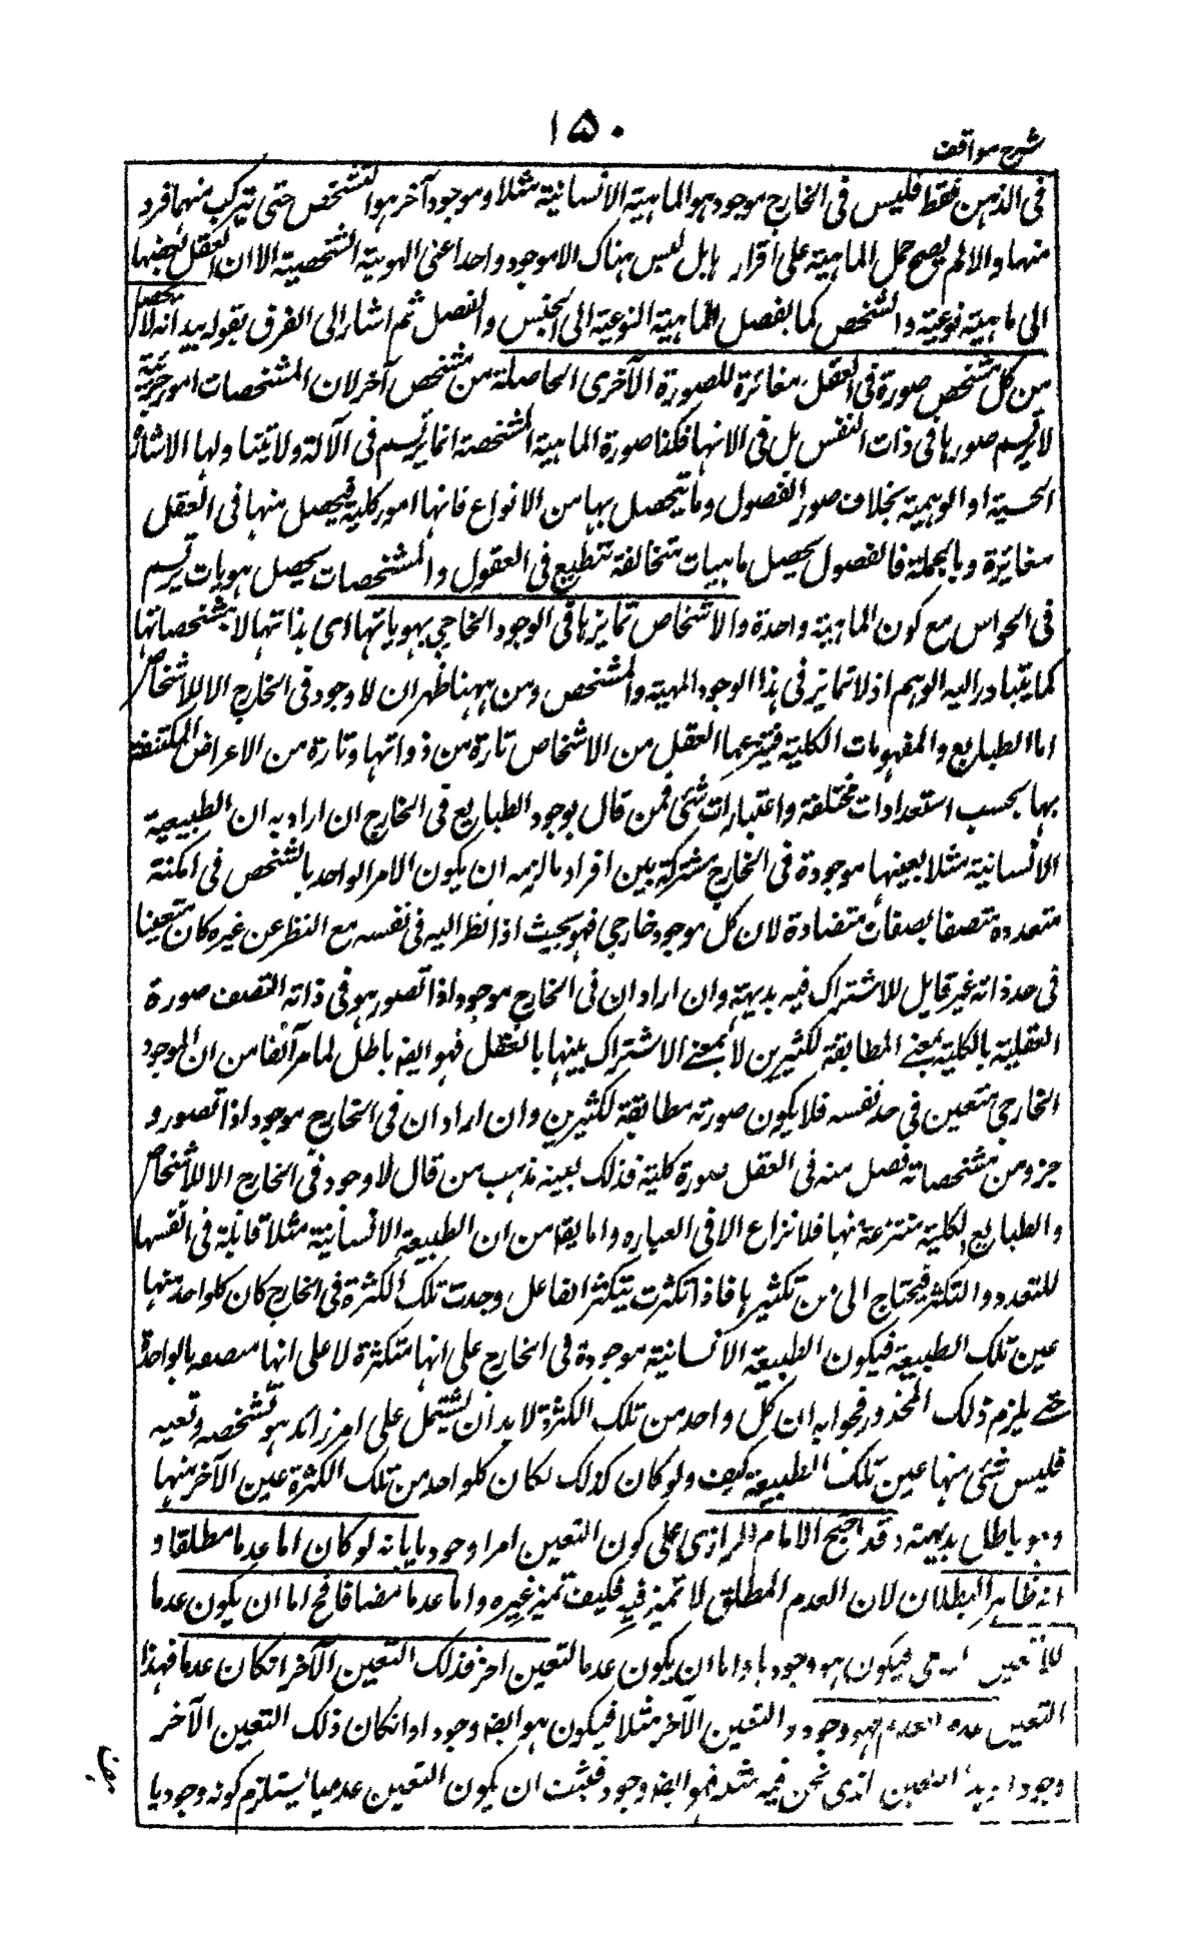 ١٥٠
شرح مواقف
فى الذهن فقط فليس فى الخارج موجود هو الماهية الانسانية مثلا وموجود آخر هو التشخص حتى يتركب منهما فرد
منها والا لم يصح حمل الماهية على افراد ها بل ليس هناك الا موجود واحد اعنى الهوية الشخصية الا ان العقل يفصلها
الى ماهية نوعية والتشخص كما يفصل الماهية النوعية الى الجنس والفصل ثم اشار الى الفرق بقوله بيد انه لا يحصل
من كل تشخص صورة فى العقل مغائرة للصورة الآخرى الحاصلة من تشخص آخر لان المشخصات امور جزئية
لا ترتسم صورها فى ذات النفس بل فى الاتها فكذا صورة الماهية المشخصة انما ترتسم فى الآلة ولا يتناولها الا الاشارة
الحسية او الوهمية بخلاف صور الفصول وما يتحصل بها من الانواع فانها امور كلية فيحصل منها فى العقل
مغائرة وبالجملة فالفصول يحصل ماهيات متخالفة تنطبع فى العقول والمشخصات يحصل هويات ترتسم
فى الحواس مع كون الماهية واحدة والاشخاص تمايزها فى الوجود الخارجى بهوياتها اى بذاتها لا بمشخصاتها
كما يتبادر اليه الوهم اذ لا تمايز فى هذا الوجود المهية والتشخص ومن ههنا ظهر ان لا وجود فى الخارج الا للاشخاص
اما الطبايع والمفهومات الكلية فينتزعها العقل من الاشخاص تارة من ذواتها وتارة من الاعراض المكتنفة
بها بحسب استعدادات مختلفة واعتبارات شتى فمن قال بوجود الطبايع فى الخارج ان اراد به ان الطبيعية
الانسانية مثلا بعينها موجودة فى الخارج مشتركة بين افرادها لزمه ان يكون الامر الواحد بالشخص فى امكنة
متعددة متصفا بصفات متضادة لان كل موجود خارجى فهو بحيث اذا نظر اليه فى نفسه مع النظر عن غيره كان متعينا
فى حد ذاته غير قابل للاشتراك فيه بديهة وان اراد ان فى الخارج موجود اذا تصور هو فى ذاته اتصف صورة
العقلية بالكلية بمعنى المطابقة لكثيرين لا بمعنى الاشتراك بينها بالفعل فهو ايضا باطل لما مر آنفا من ان الموجود
الخارجى متعين فى حد نفسه فلا يكون صورته مطابقة لكثيرين وان اراد ان فى الخارج موجود اذا تصور و
جزو من مشخصاته فصل منه فى العقل صورة كلية فذلك بعينه مذهب من قال لا وجود فى الخارج الا للاشخاص
والطبايع الكلية منتزعة منها فلا نزاع الا فى العبارة واما يقال من ان الطبيعة الانسانية مثلا قابلة فى انفسها
للتعدد والتكثر فيحتاج الى من تكثيرها فاذا تكثرت بتكثر الفاعل وجدت تلك الكثرة فى الخارج كان كلواحد منها
عين تلك الطبيعة فيكون الطبيعة الانسانية موجودة فى الخارج على انها متكثرة لا على انها متصفة بالواحدة
حتى يلزم ذلك المحذور فجوابه ان كل واحد من تلك الكثرة لا بد ان يشتمل على امر زائد هو تشخصه وتعينه
فليس شئ منها عين تلك الطبيعة كيف ولو كان كذلك لكان كلواحد من تلك الكثرة عين الآخر منها
وهو باطل بديهة وقد احتج الامام الرازى على كون التعين امرا وجوديا بانه لو كان اما عدما مطلقا و
انه ظاهر البطلان لان العدم المطلق لا تميز فيه فكيف تميز غيره واما عدما مضافا فح اما ان يكون عدما
للاتعين فيكون هو وجوديا واما ان يكون عدما لتعين اخر فذلك التعين الآخر انكان عدما فهذا
التعين عدم العدم فهو وجود والتعين الآخر مثلا فيكون هو ايضا وجود اوانكان ذلك التعين الآخر
وجودا التعين الذى نحن فيه مثله فهو ايضا وجود فثبت ان يكون التعين عدميا يستلزم كونه وجوديا